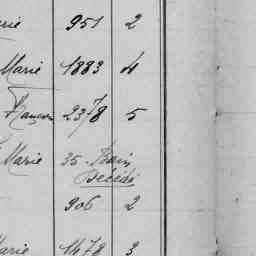 rie 951 2
Marie 1883 4
2378 5
Marie 35
Décédé
906 2
Marie 1478 3